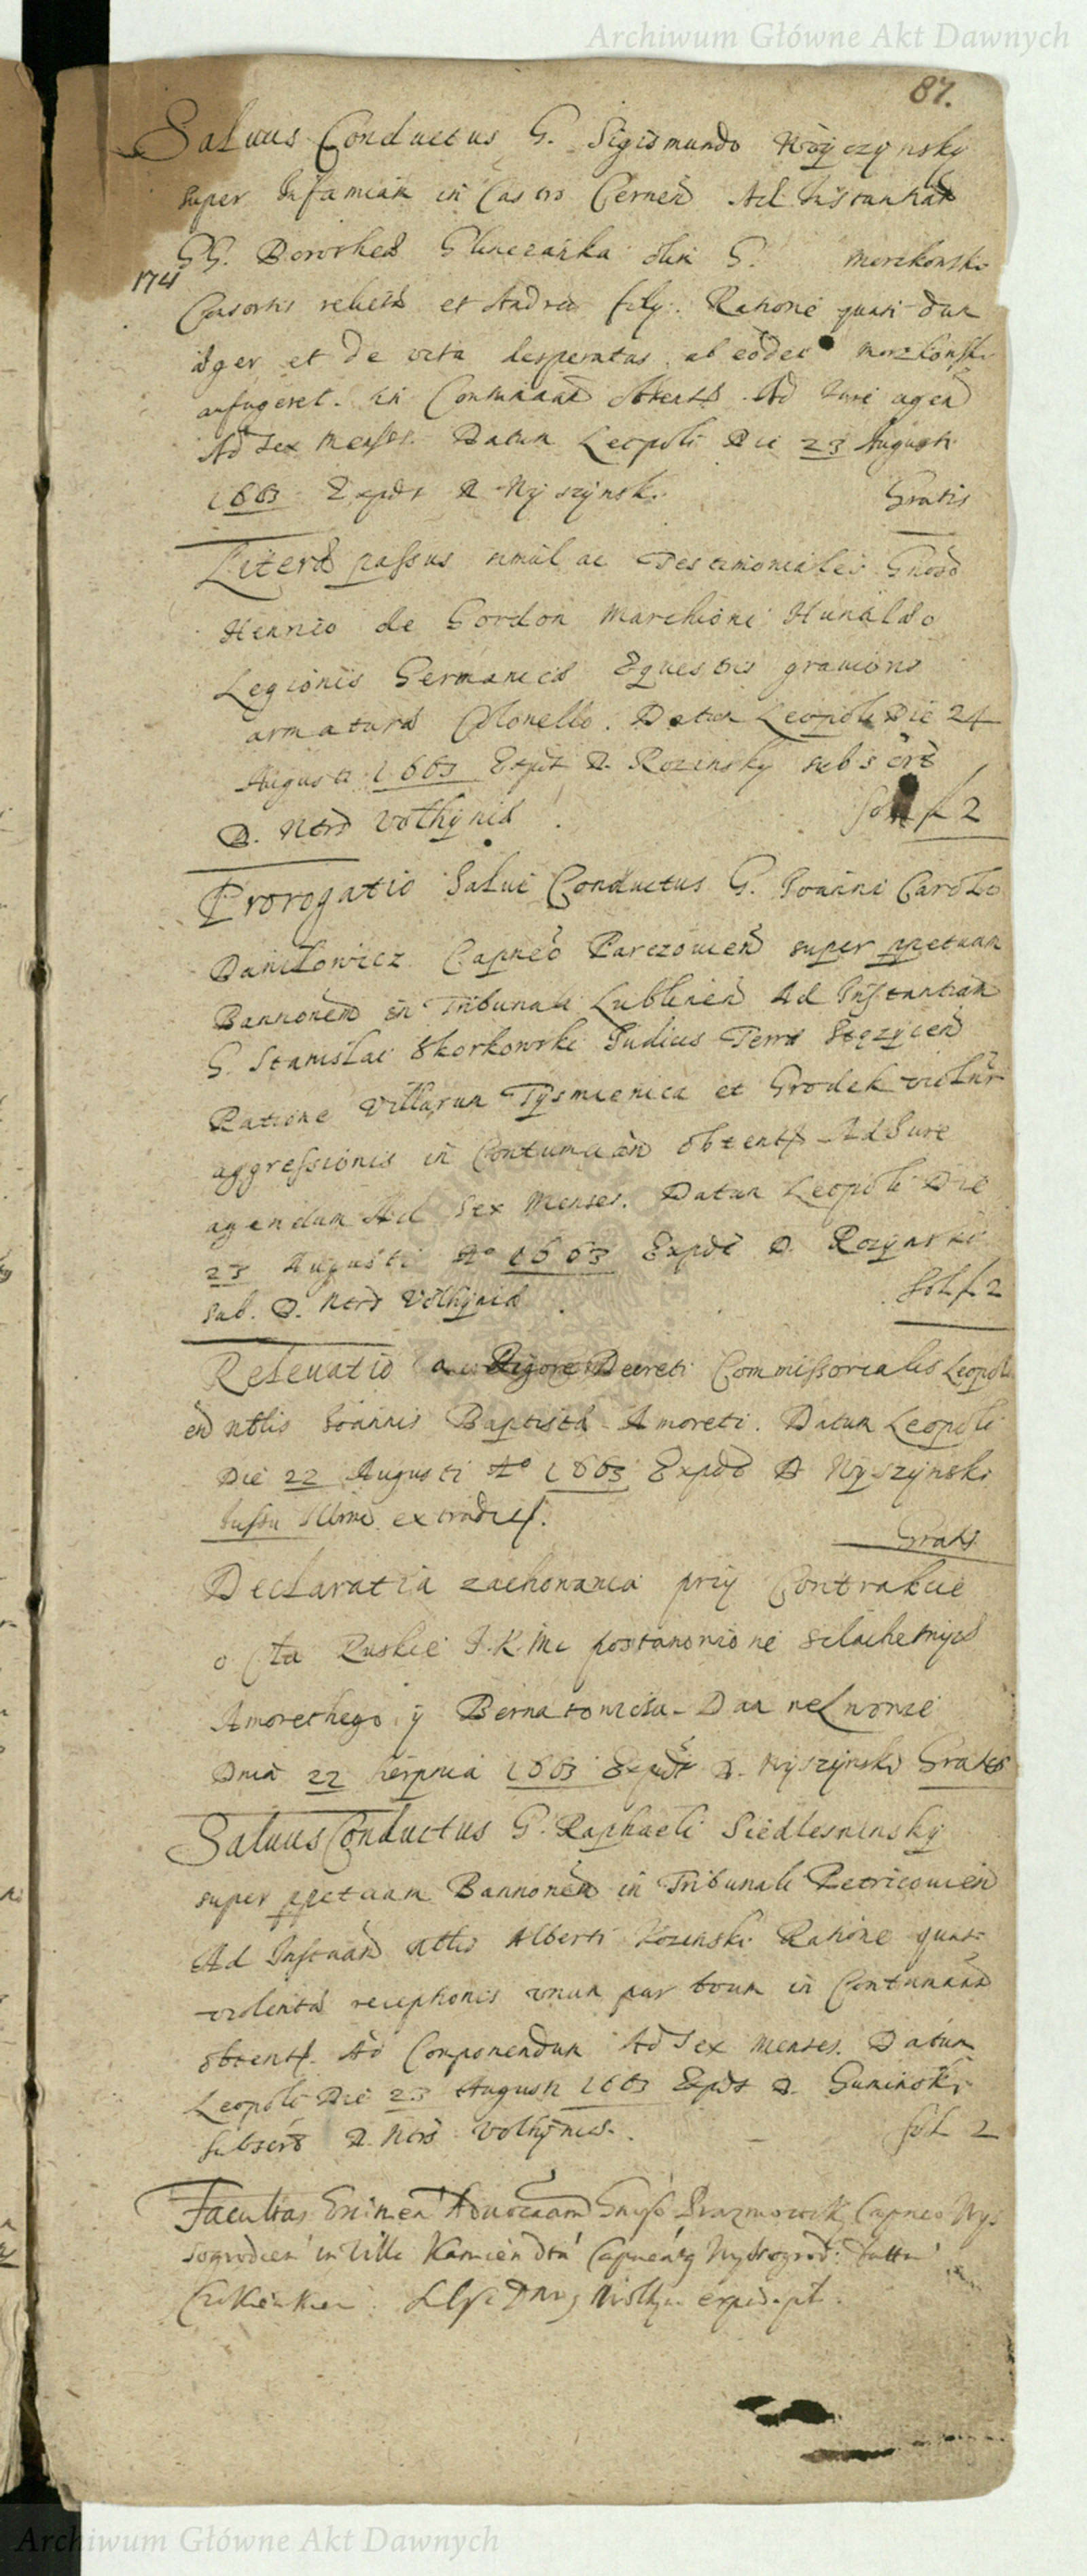 Archiwum Główne Akt Dawnych
87.
Salvus Conductus G. Sigismundo Woyczynsky
super Infamiam in Castro Cernen Ad Instantiam
GG. olim G. Mierzkowski
174
Consortis relictae et Andreae filij. Ratione quasi dum
aeger et de vita desperatus ab eodem Mierzkowski
aufugeret. in Contumaciam obtent. Ad Iure agen
Ad Sex Menses. Datum Leopoli Die 23 Augusti
1663 Expdt D Wyszynski Gratis
Literae passus simul ac Testimoniales Gnoso
Henrico de Gordon Marchioni Hunaldo
Legionis Germanicae Equestris gravioris
armaturae Colonello. Datum Leopoli Die 24
Augusti 1663 Expdt D. Rozinsky subscrē
D. Ntrd Volhyniae Sol f 2
Prorogatio Salvi Conductus G. Joanni Carolo
Danilowicz Capneo Parczovien super ppetuam
Bannonem in Tribunali Lublinen Ad Instantiam
G. Stanislai Skorkowski Judicis Terrae Stezycen
Ratione Villarum Tysmienica et Grodek violtur
aggressionis in Contumaciam obtent Ad Iure
agendum Ad Sex Menses. Datum Leopoli Die
23 Augusti Ao 1663 Expdt D. Rozynski
sub. D. Ntrd Volhyniae Sol f 2
Relevatio a Rigore Decreti Commissorialis Leopoli
en Nblis Joannis Baptistae Amoreti. Datum Leopoli
Die 22 Augusti Ao 1663 Expdt D Wyszynski
Iussu Illmi extradit.
Gratis
Declaratia zachowania przy Contrakcie
o Cła Ruskie J.K.Mc postanowione szlachetnych
Amorethego y Bernatowicza. Dan we Lwowie
Dnia 22 Sierpnia 1663 Expdt D. Wyszynski Gratis
Salvus Conductus G. Raphaeli Siedlesninsky
super ppetuam Bannonem in Tribunali Petricovien
Ad Instnam Nblis Alberti Kozinski Ratione quasi
violentae receptionis unum par boum in Contumaciam
obtent. Ad Componendum Ad Sex Menses. Datum
Leopoli Die 23 Augusti 1663 Expdt D. Guminski
subscrō D. Ntrd Volhyniae. Sol 2
Facultas Advocatiam Capneo Wys
sogrodien in Villa Kamien Capneatg Wyssogrod:
expd.
Archiwum Główne Akt Dawnych